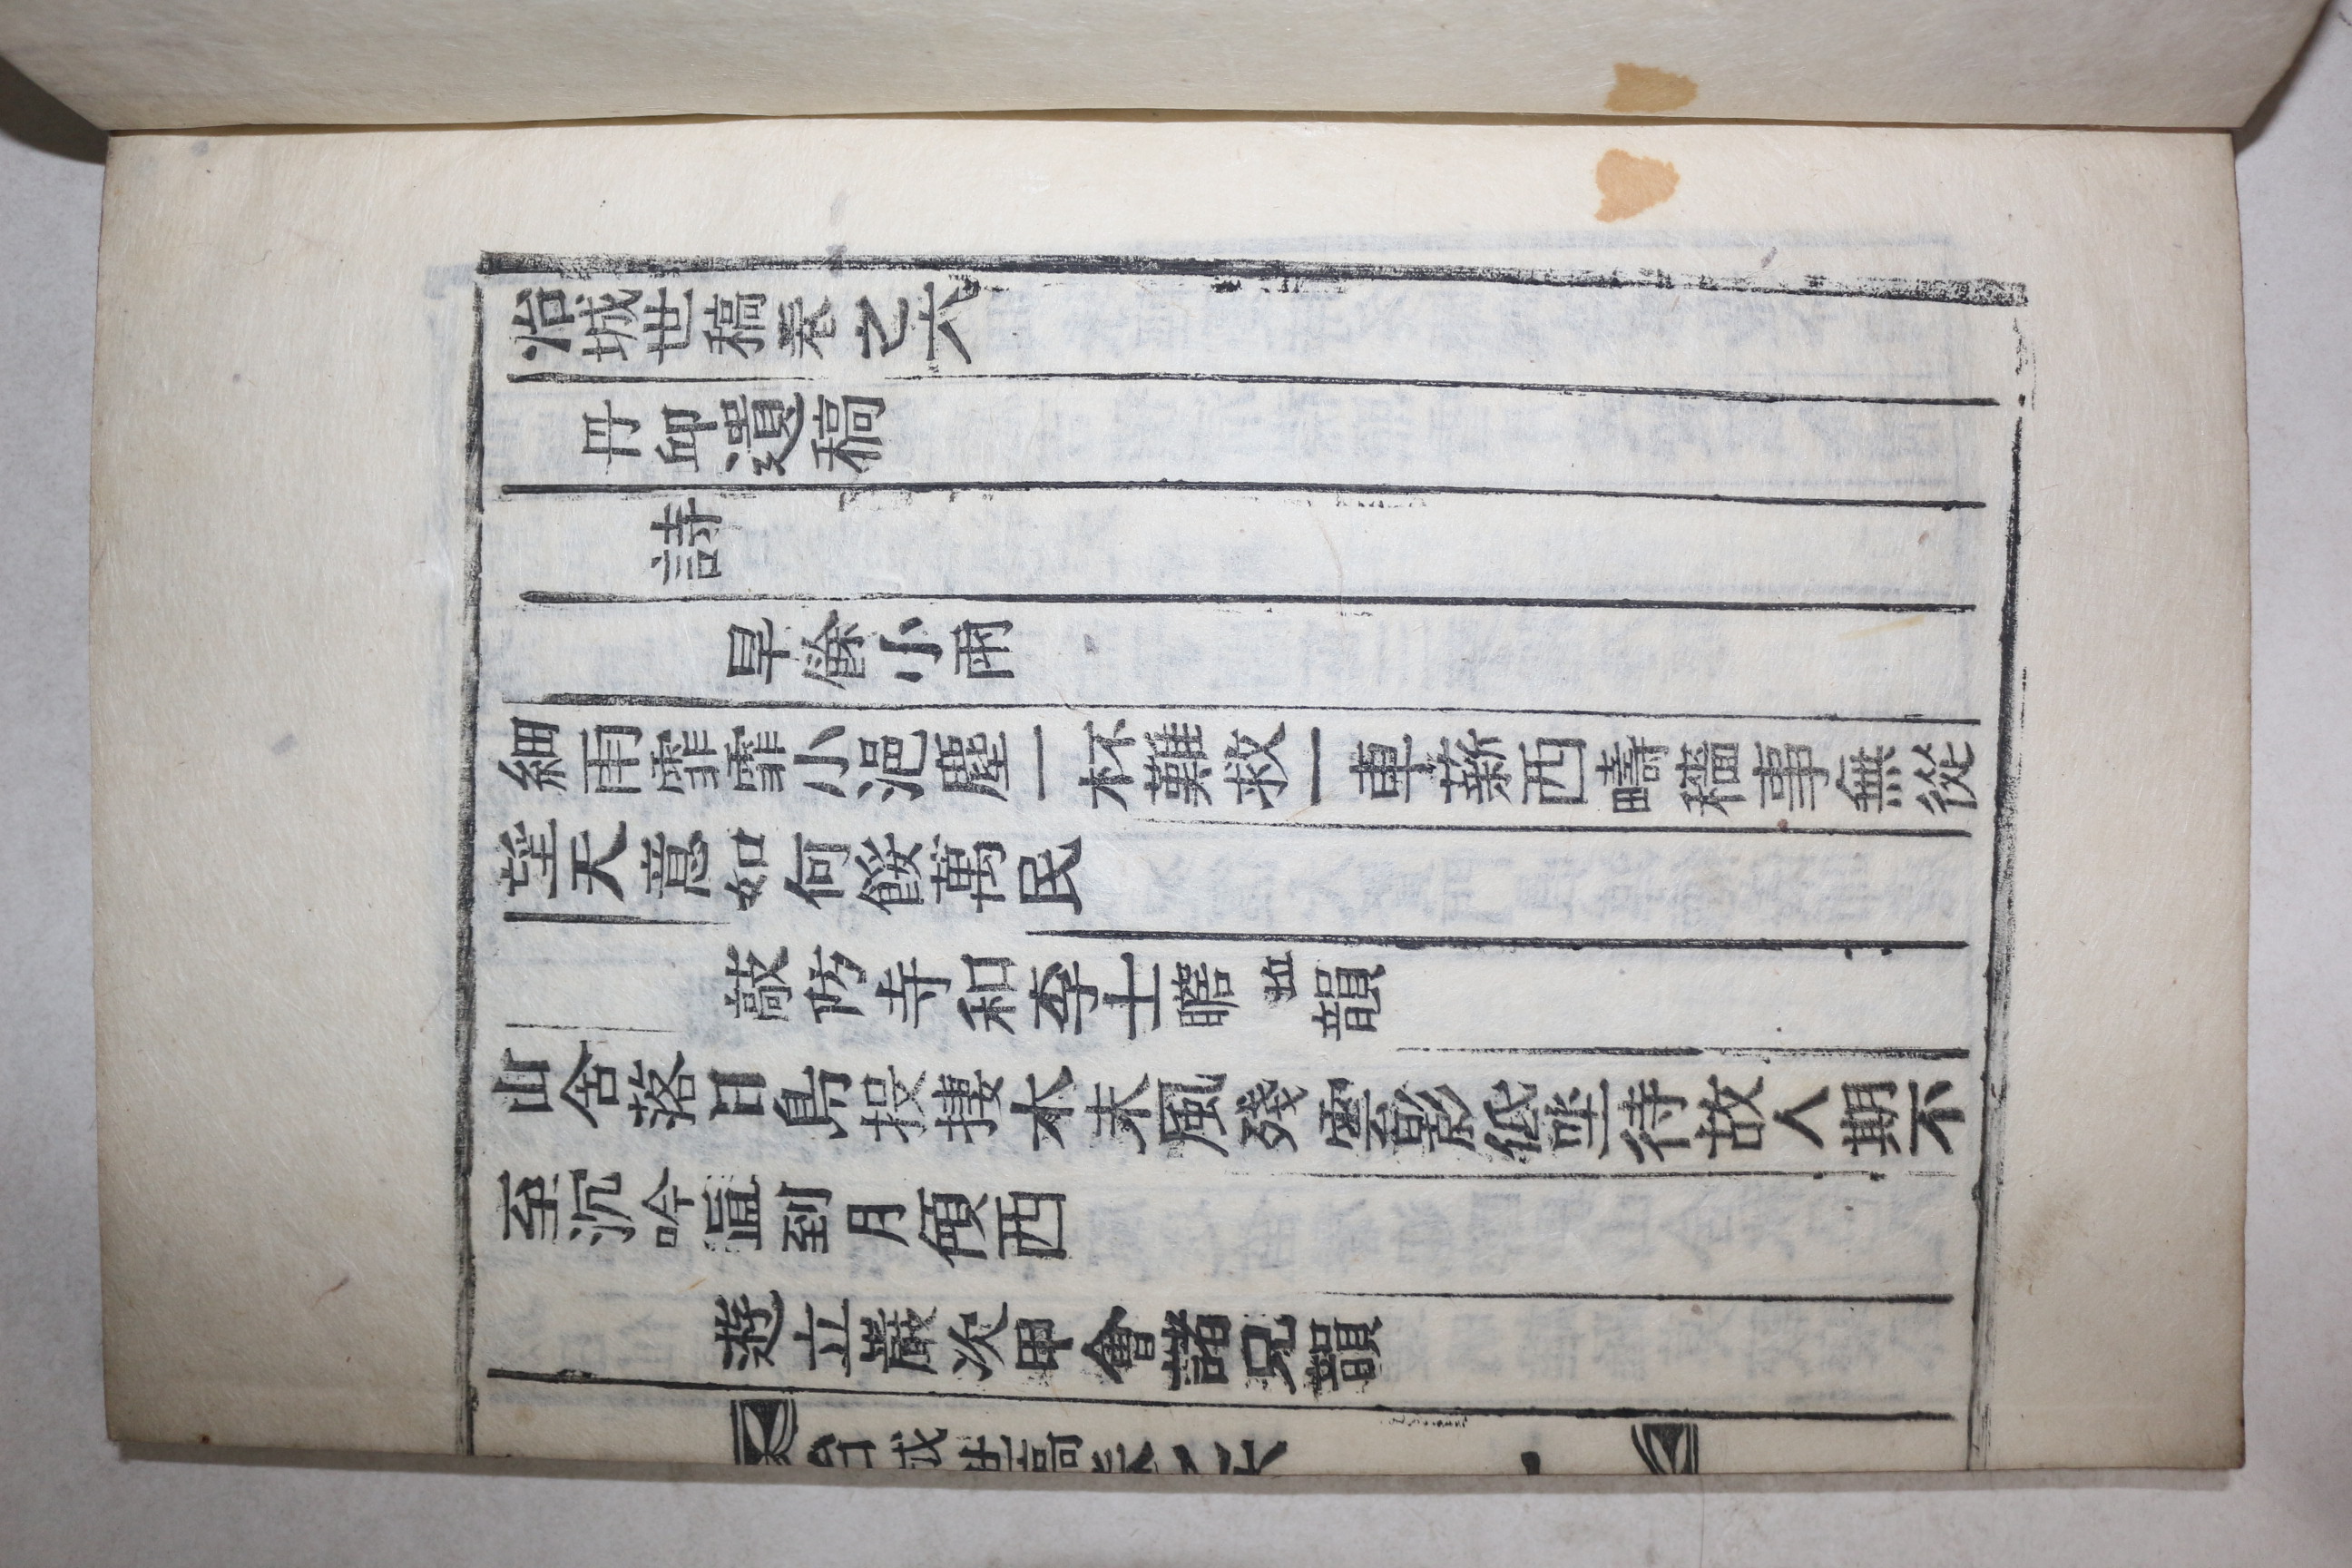 冶城世稿卷之六
丹邱遺稿
詩
旱餘小雨
細雨霏霏小浥塵一杯難救一車薪西疇穡事無從
望天意如何餒萬民
敲防寺和李士瞻韻
山舍落日鳥投捿木末風殘塵影低坐待故人期不
至沉吟直到月傾西
遊立巖次甲會諸兄韻
冶城世稿卷之六